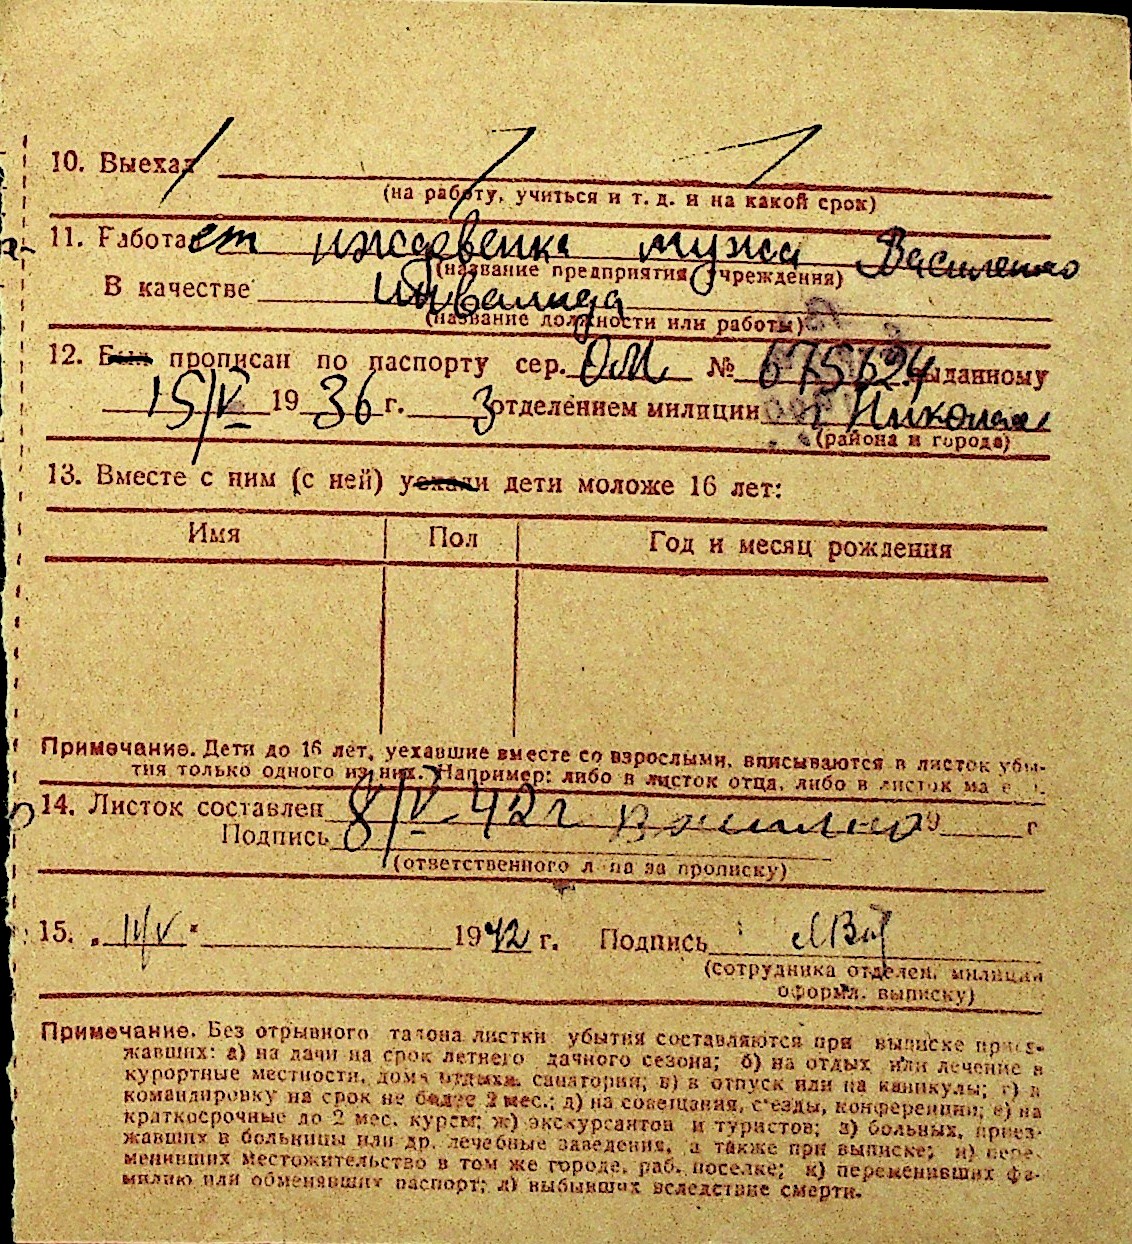 10. Выехал
(на работу, учиться и т. д. и на какой срок)
11. Работает иждевенка мужа Василенко
(название предприятия учреждения)
В качестве инвалида
(название должности или работы)
12. Был прописан по паспорту сер. ОМ № 675624 выданному
15/V 1936 г. 3 отделением милиции г. Николаев
(района и города)
13. Вместе с ним (с ней) уехали дети моложе 16 лет:
Имя Пол Год и месяц рождения
Примечание. Дети до 16 лет, уехавшие вместе со взрослыми, вписываются в листок убы-
тия только одного из них. Например: либо в листок отца, либо в листок
14. Листок составлен 8/V 42 г. 19 г
Подпись
(ответственного лица за прописку)
15. „ 11/V " 1942 г. Подпись
(сотрудника отделен. милиции
оформ. выписку)
Примечание. Без отрывного талона листки убытия составляются при выписке приез-
жавших: а) на дачи на срок летнего дачного сезона; б) на отдых или лечение в
курортные местности, дома отдыха, санатории; в) в отпуск или на каникулы; г) в
командировку на срок не более 2 мес.; д) на совещания, съезды, конференции; е) на
краткосрочные до 2 мес. курсы; ж) экскурсантов и туристов; з) больных, приез-
жавших в больницы или др. лечебные заведения, а также при выписке; и) пере-
менивших местожительство в том же городе, раб. поселке; к) переменивших фа-
милию или обменявших паспорт; л) выбывших вследствие смерти.